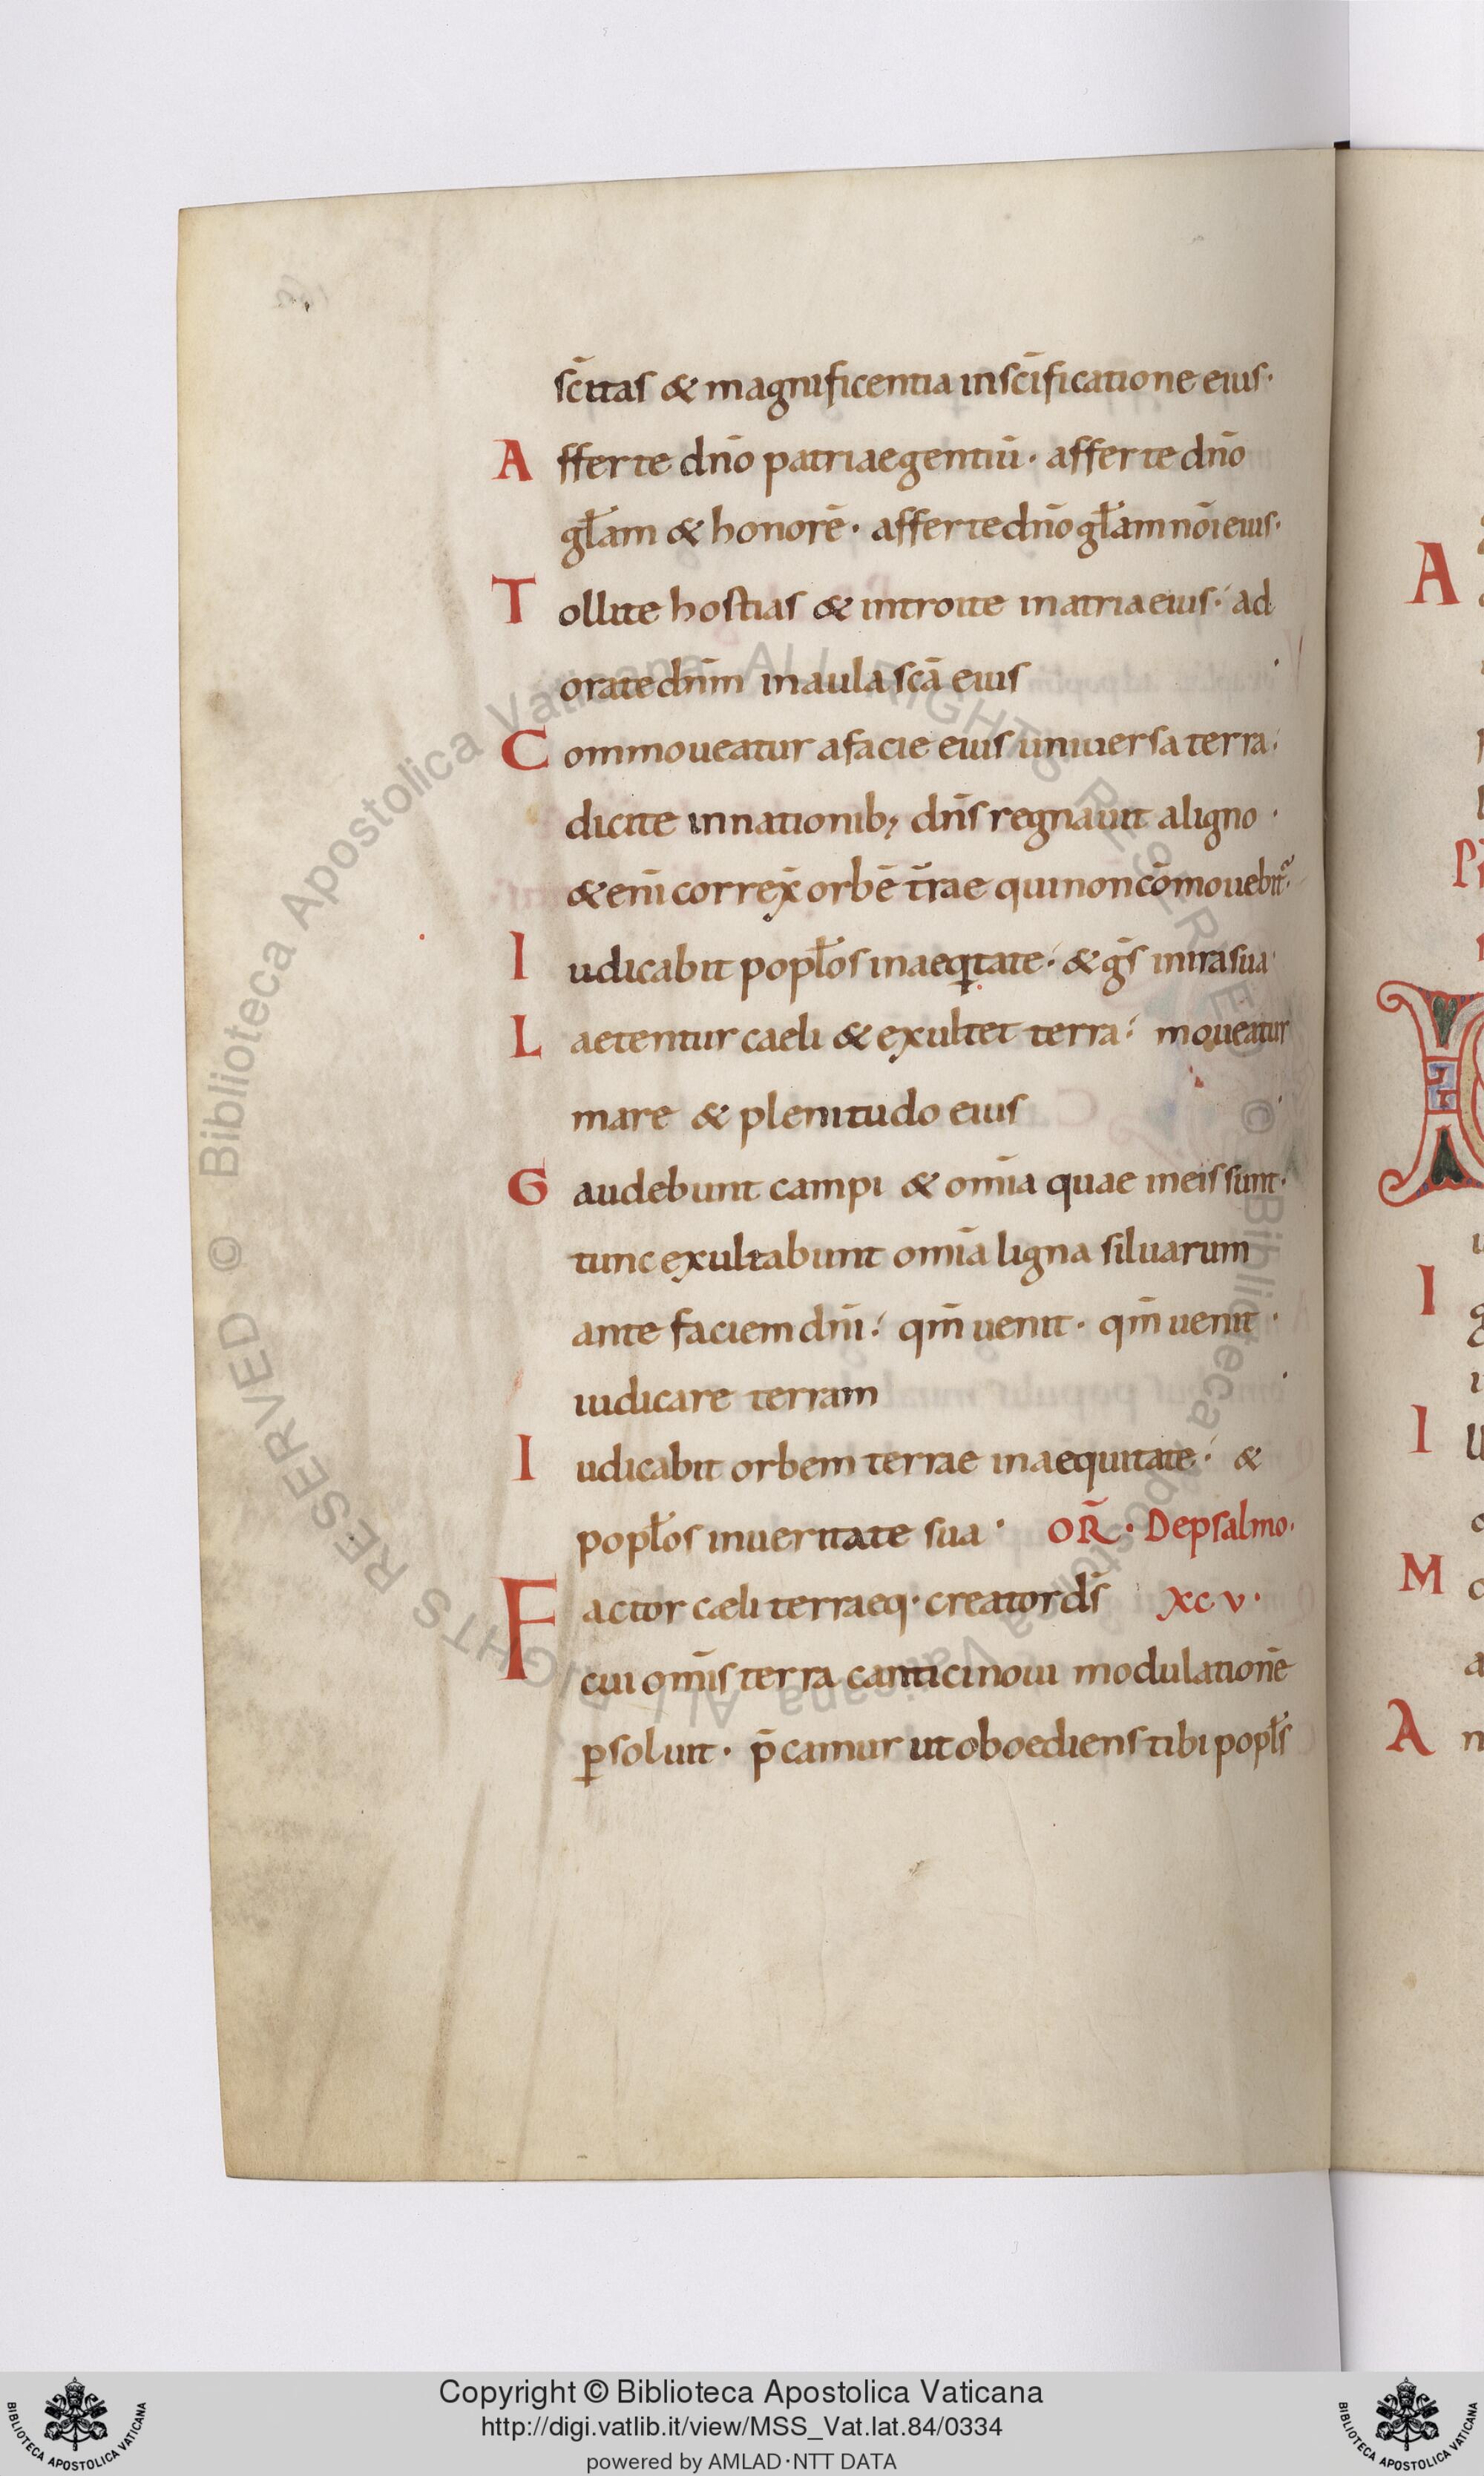 sc̄itas & magnificentia in sc̄ificatione eius·
Afferte dn̄o patriae gentiū· afferte dn̄o
gl̄am & honorē· afferte dn̄o gl̄am nōi eius·
Tollite hostias & introite in atria eius·́ ad
orate dn̄m in aula sc̄a eius·
Commoueatur a facie eius uniuersa terra·́
dicite in nationib; dn̄s regnauit a ligno·
& eni correx̄ orbē t̄rae qui non cōmouebit᷑·
Iudicabit popl̄os in aeqͥtate·́ & ḡs in ira sua·
Laetentur caeli & exultet terra·́ moueatur
mare & plenitudo eius·
Gaudebunt campi & om̄ia quae in eis sunt·
tunc exultabunt om̄ia ligna siluarum
ante faciem dn̄i·́ qm̄ uenit· qm̄ uenit·
iudicare terram·
Iudicabit orbem terrae in aequitate·́ &
popl̄os in ueritate sua· OR̄· De psalmo·
Factor cæli terraeq· creator ds̄ xcv·
cui om̄is terra cantici noui modulationē
ꝑsoluit· p̄camur ut oboediens tibi popl̄s
A
I
I
M
A
Copyright © Biblioteca Apostolica Vaticana
http://digi.vatlib.it/view/MSS_Vat.lat.84/0334
powered by AMLAD·NTT DATA
BIBLIOTECA APOSTOLICA VATICANA
BIBLIOTECA APOSTOLICA VATICANA
© Biblioteca Apostolica Vaticana ALL RIGHTS RESERVED
© Biblioteca Apostolica Vaticana ALL RIGHTS RESERVED